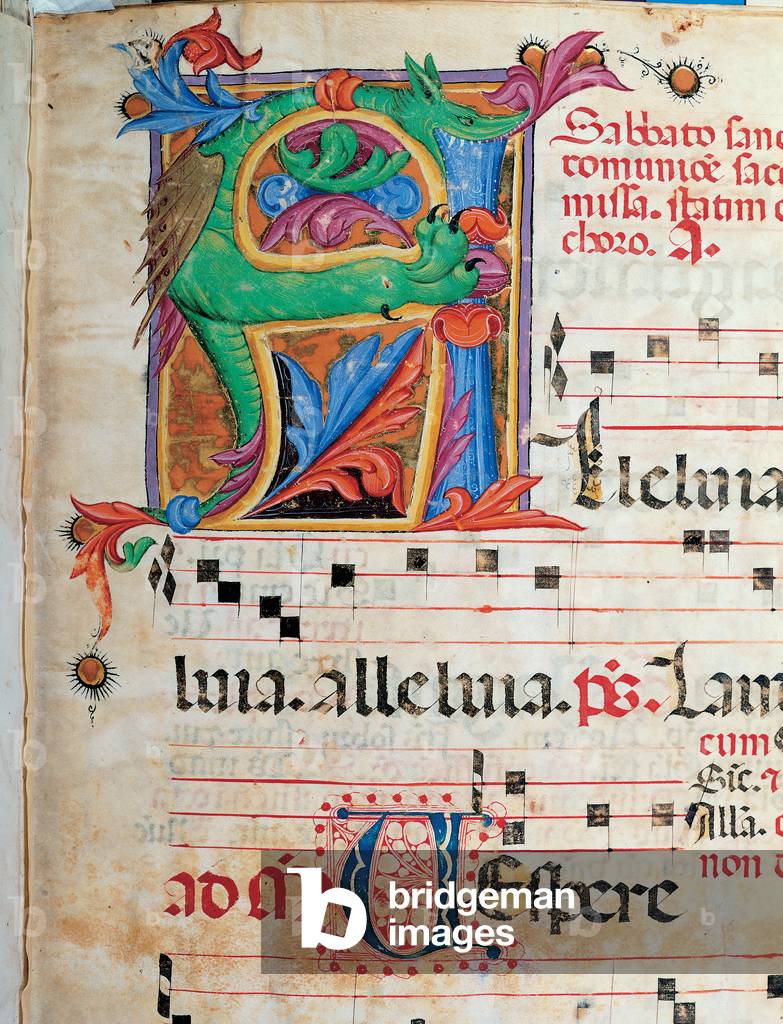 Sabbato sanc
comunicōe sace
missa. statim c
choro. A.
Alelui a
luia. alleluia. ps. Lau
cum
Sic.
Allā.
non
ad M Uespere
bridgeman
images